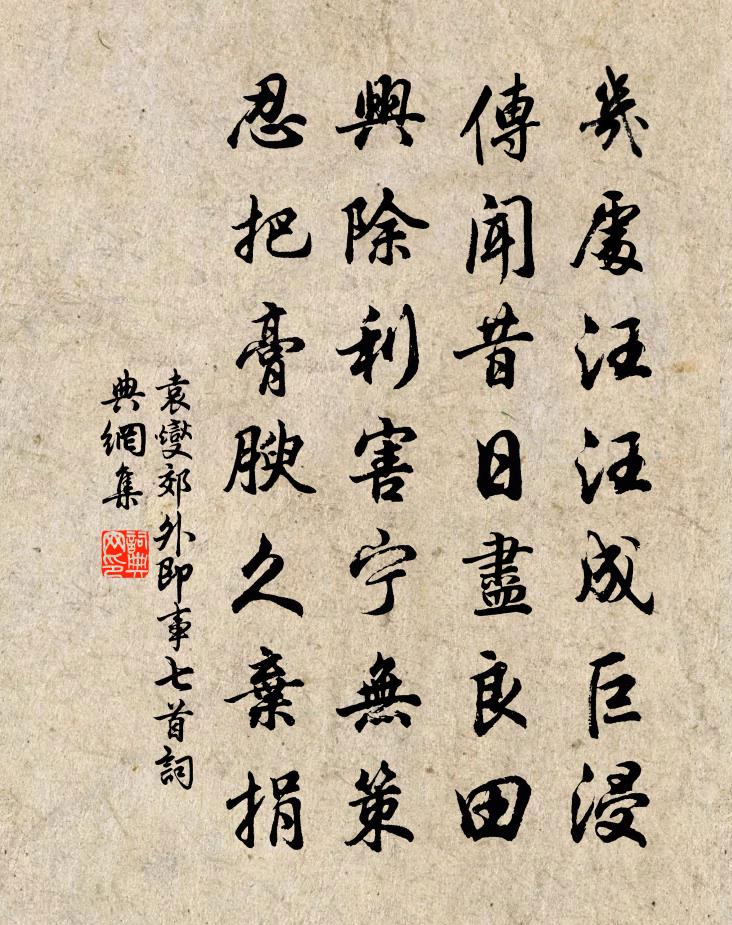 幾處汪汪成巨浸
傳聞昔日盡良田
興除利害宁無策
忍把膏腴久棄捐
袁燮郊外即事七首詞
典網集
詞典
网印